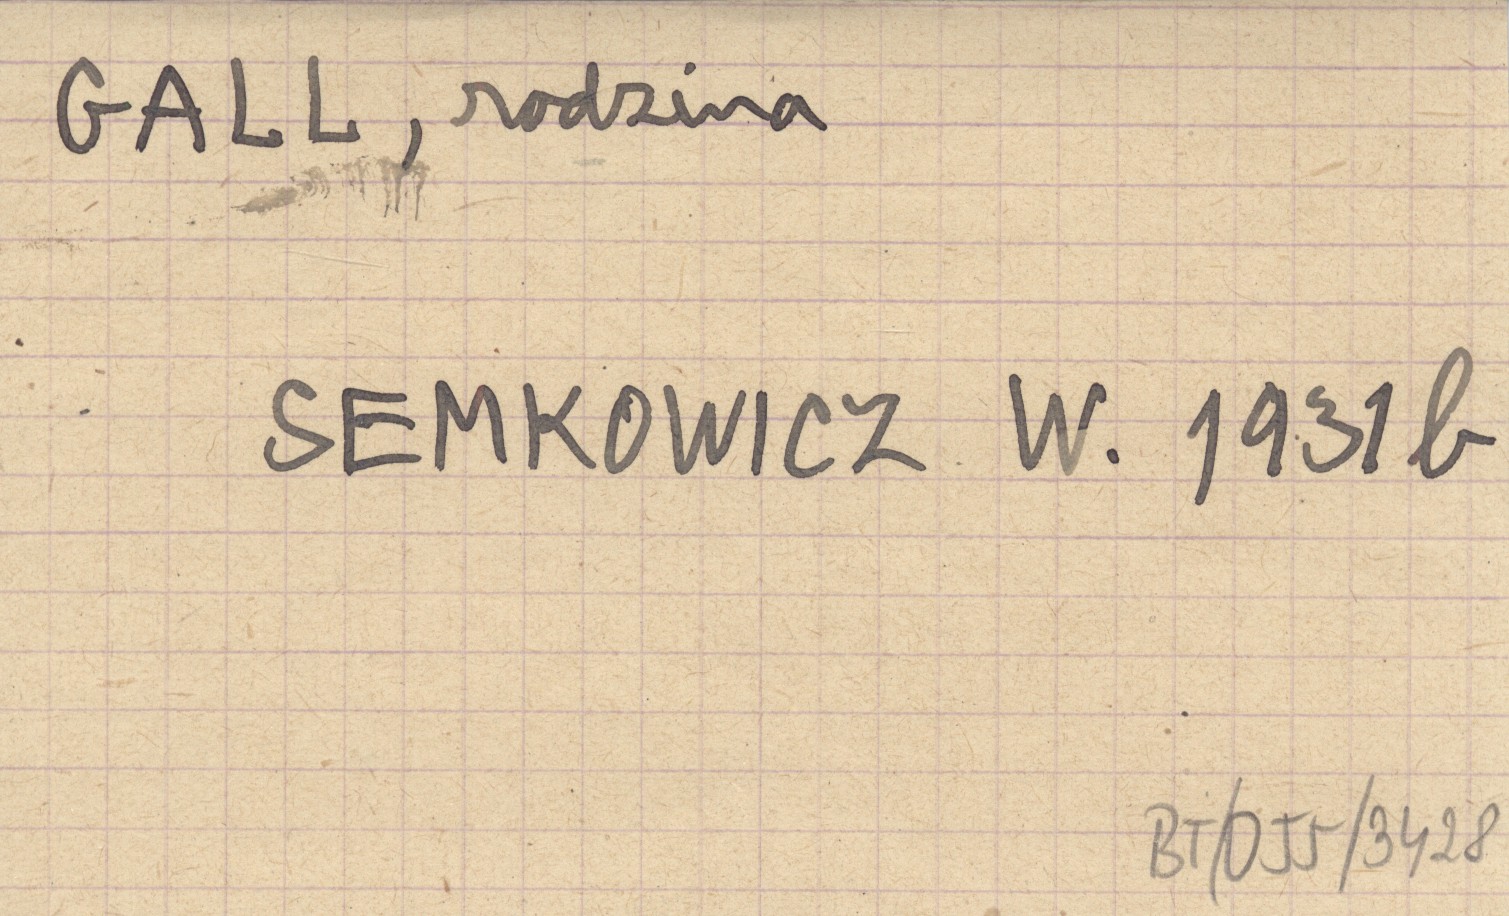 GALL, rodzina
SEMKOWICZ W. 1931b
BT/055/3428